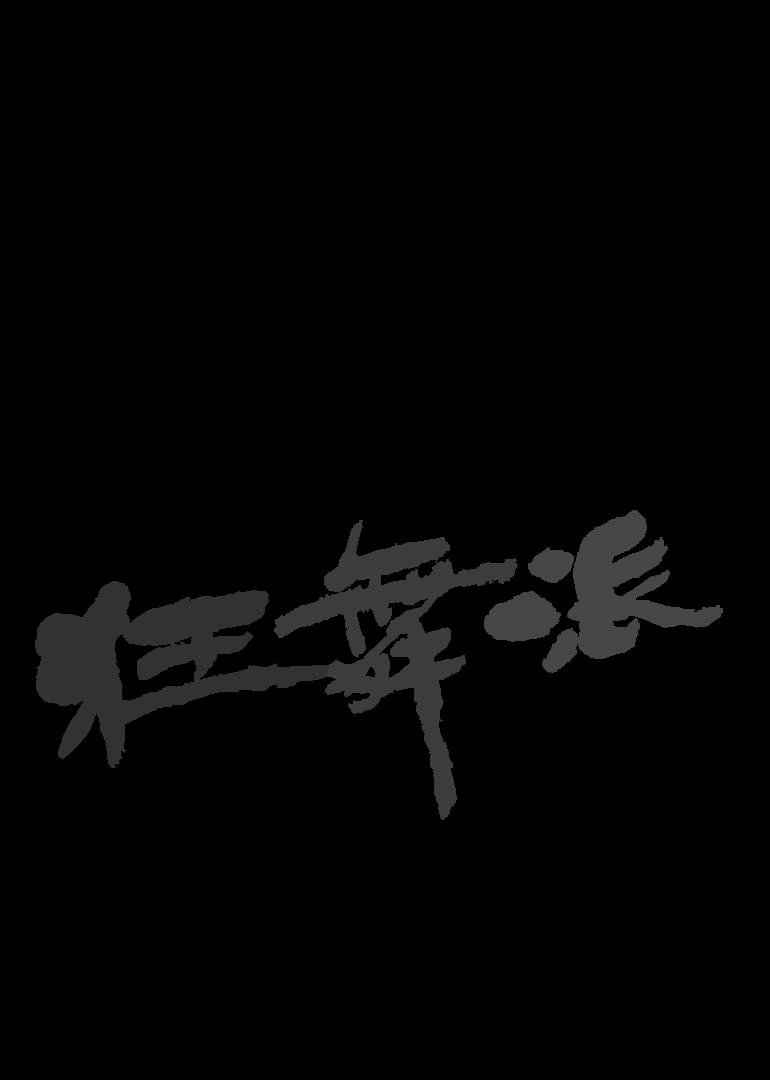 狂舞派